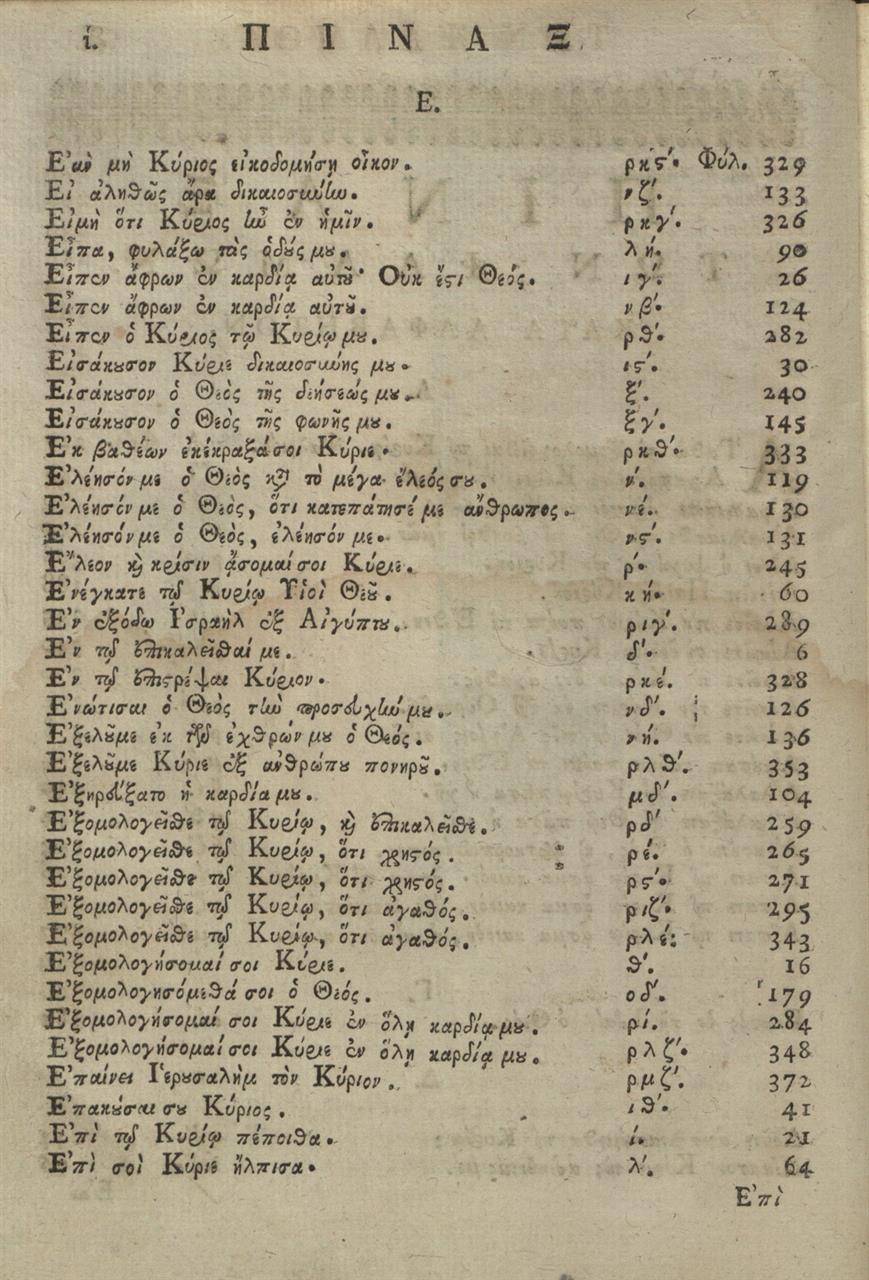 ί. Π Ι Ν Α Ξ
Ε.
Ε'ὰν μὴ Κύριος εἰκοδομήσῃ οἶκον. ρκς'. Φύλ. 329
Εἰ ἀληθῶς ἄρα δικαιοσύνην. νζ'. 133
Εἰμὴ ὅτι Κύριος ἦν ἐν ἡμῖν. ρκγ'. 326
Εἶπα, φυλάξω τὰς ὁδούς μου. λή. 90
Εἶπεν ἄφρων ἐν καρδίᾳ αὐτοῦ· Οὐκ ἔστι Θεός. ιγ'. 26
Εἶπεν ἄφρων ἐν καρδίᾳ αὐτοῦ. νβ'. 124
Εἶπεν ὁ Κύριος τῷ Κυρίῳ μου. ρθ'. 282
Εἰσάκουσον Κύριε δικαιοσύνης μου. ις'. 30
Εἰσάκουσον ὁ Θεὸς τῆς δεήσεώς μου. ξ'. 240
Εἰσάκουσον ὁ Θεὸς τῆς φωνῆς μου. ξγ'. 145
Ε'κ βαθέων ἐκέκραξά σοι Κύριε. ρκθ'. 333
Ε'λέησόν με ὁ Θεὸς κατὰ τὸ μέγα ἔλεός σου. ν'. 119
Ε'λέησόν με ὁ Θεὸς, ὅτι κατεπάτησέ με ἄνθρωπος. νέ. 130
Ε'λέησόν με ὁ Θεὸς, ἐλέησόν με. νς'. 131
Ε"λεον καὶ κρίσιν ᾄσομαί σοι Κύριε. ρ'. 245
Ε'νέγκατε τῷ Κυρίῳ Υἱοὶ Θεοῦ. κή. 60
Ε'ν ἐξόδῳ Ι'σραὴλ ἐξ Αἰγύπτου. ριγ'. 289
Ε'ν τῷ ἐπικαλεῖσθαί με. δ'. 6
Ε'ν τῷ ἐπιστρέψαι Κύριον. ρκέ. 328
Ε'νώτισαι ὁ Θεὸς τὴν προσευχήν μου. νδ'. 126
Ε'ξελοῦ με ἐκ τῶν ἐχθρών μου ὁ Θεός. νή. 136
Ε'ξελοῦ με Κύριε ἐξ ἀνθρώπου πονηροῦ. ρλθ'. 353
Ε'ξηρεύξατο ἡ καρδία μου. μδ'. 104
Ε'ξομολογεῖσθε τῷ Κυρίῳ, καὶ ἐπικαλεῖσθε. ρδ' 259
Ε'ξομολογεῖσθε τῷ Κυρίῳ, ὅτι χρηστός. ρέ. 265
Ε'ξομολογεῖσθε τῷ Κυρίῳ, ὅτι χρηστός. ρς'. 271
Ε'ξομολογεῖσθε τῷ Κυρίῳ, ὅτι ἀγαθός. ριζ'. 295
Ε'ξομολογεῖσθε τῷ Κυρίῳ, ὅτι ἀγαθός. ρλέ: 343
Ε'ξομολογήσομαί σοι Κύριε. θ'. 16
Ε'ξομολογησόμεθά σοι ὁ Θεός. οδ'. 179
Ε'ξομολογήσομαί σοι Κύριε ἐν ὅλῃ καρδίᾳ μου. ρί. 284
Ε'ξομολογήσομαί σοι Κύριε ἐν ὅλῃ καρδίᾳ μου. ρλζ'. 348
Ε'παίνει Ι'ερουσαλὴμ τὸν Κύριον. ρμζ'. 372
Ε'πακούσαι σου Κύριος. ιθ'. 41
Ε'πὶ τῷ Κυρίῳ πέποιθα. ί. 21
Ε'πὶ σοὶ Κύριε ἤλπισα. λ'. 64
Ε'πὶ